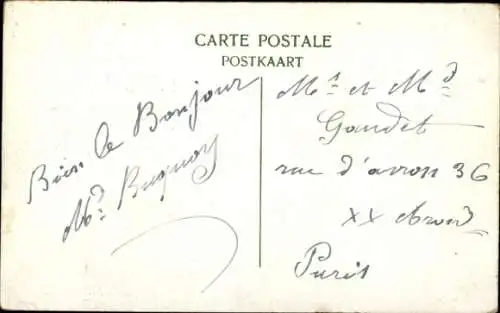 CARTE POSTALE
POSTKAART
Bien le Bonjour
Md Buquoy
Mr et Md
Gaudet
rue d'avron 36
XX Arond
Paris